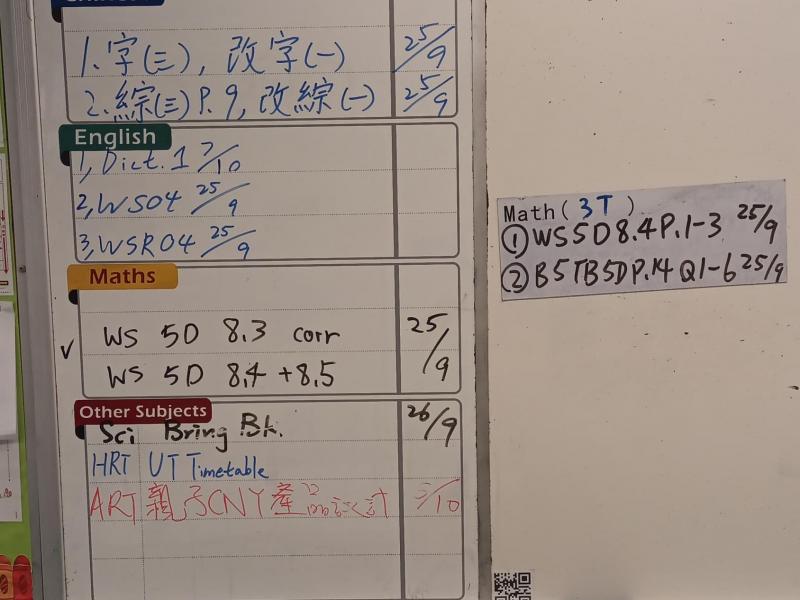 1. 字(三), 改字(一) 25/9
2. 綜(三) P.9, 改綜(一) 25/9
English
1, Dict. 1 7/10
2, WS04 25/9
3, WSR04 25/9
Maths
✓ WS 5D 8.3 corr 25/9
WS 5D 8.4 + 8.5
Other Subjects
Sci Bring Bk. 26/9
HRT UT Timetable
ART 親子CNY產品設計 /10
Math( 3T )
① WS5D8.4P.1-3 25/9
② B5TB5DP.14 Q1-6 25/9